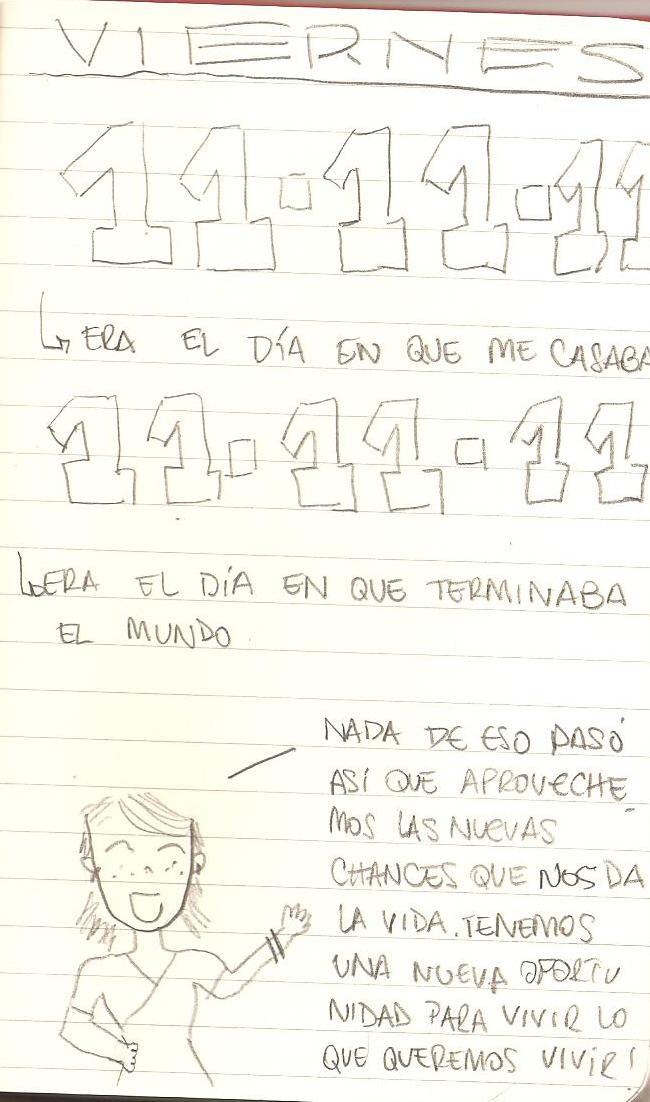 VIERNES
11.11.11
ERA EL DÍA EN QUE ME CASABA
11.11.11
ERA EL DÍA EN QUE TERMINABA
EL MUNDO
NADA DE ESO PASÓ
ASÍ QUE APROVECHE
MOS LAS NUEVAS
CHANCES QUE NOS DA
LA VIDA. TENEMOS
UNA NUEVA OPORTU
NIDAD PARA VIVIR LO
QUE QUEREMOS VIVIR!